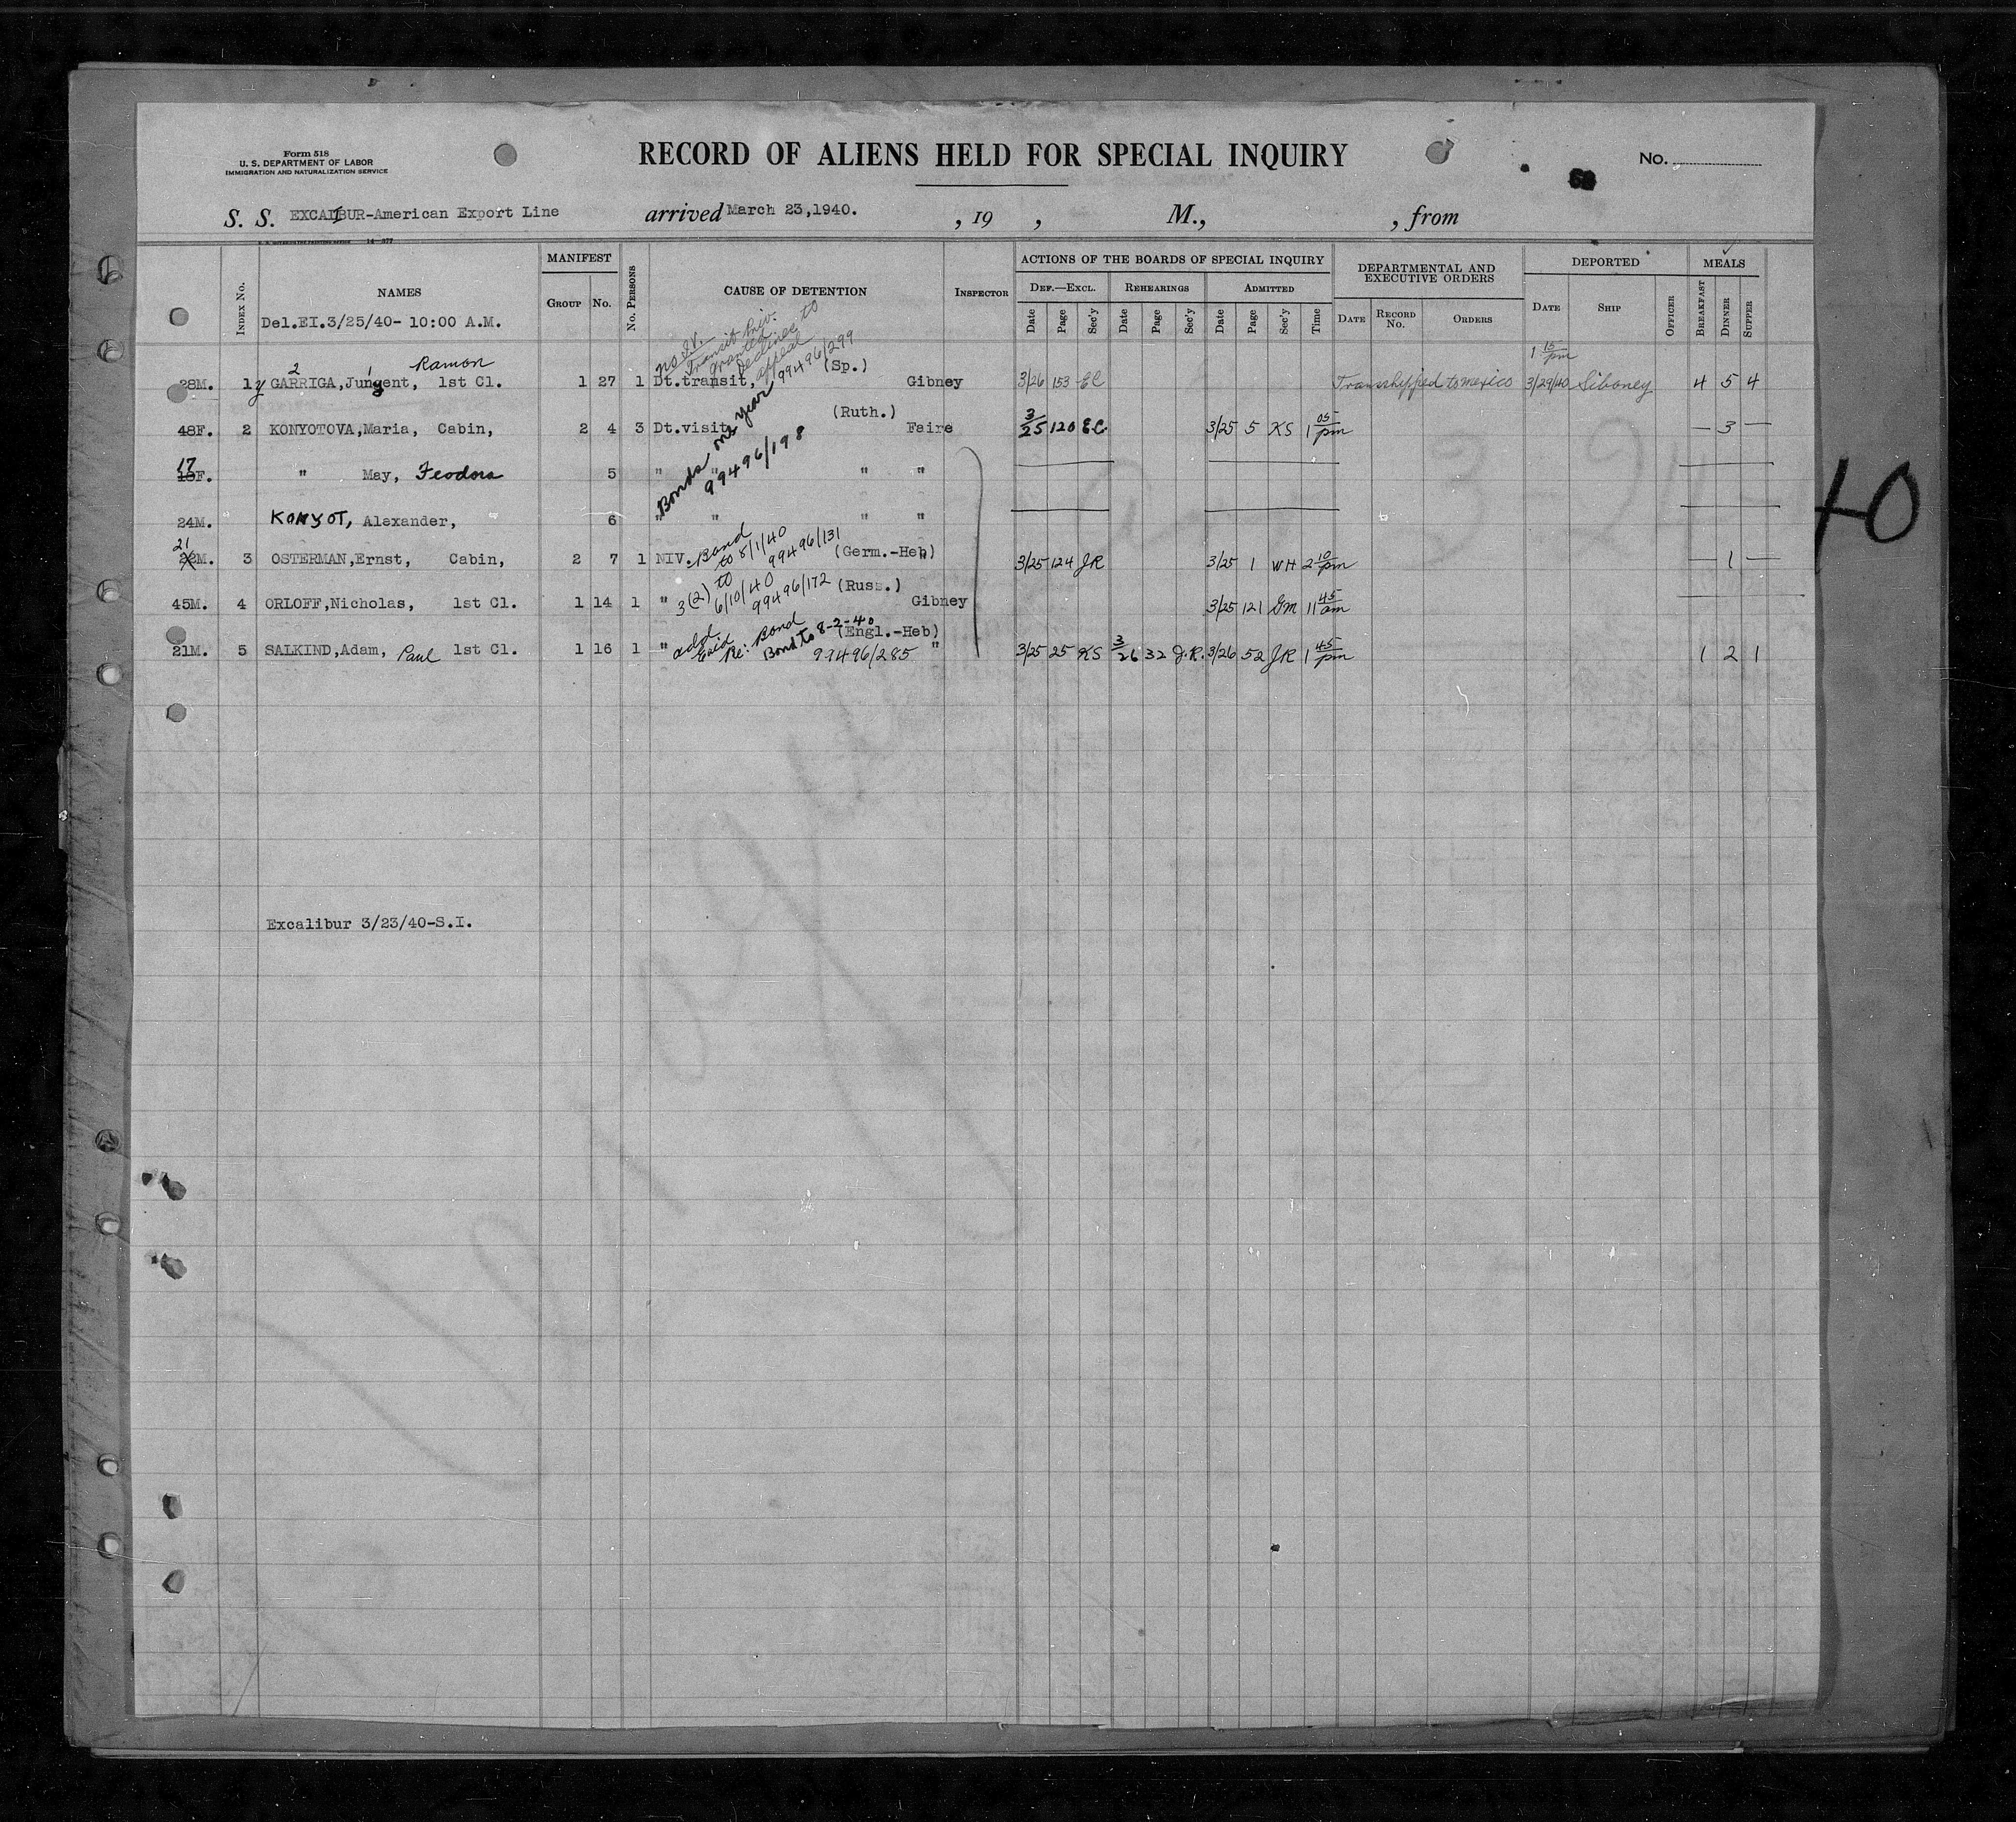 Form 518
U. S. DEPARTMENT OF LABOR
IMMIGRATION AND NATURALIZATION SERVICE
RECORD OF ALIENS HELD FOR SPECIAL INQUIRY
No.
S. S. EXCALIBUR-American Export Line arrived March 23,1940. , 19 , M., , from
14—577
Index No. NAMES MANIFEST No. Persons CAUSE OF DETENTION Inspector ACTIONS OF THE BOARDS OF SPECIAL INQUIRY DEPARTMENTAL AND EXECUTIVE ORDERS DEPORTED MEALS
Group No. Def.—Excl. Rehearings Admitted Date Record No. Orders Date Ship Officer Breakfast Dinner Supper
Date Page Sec'y Date Page Sec'y Date Page Sec'y Time
Del.EI.3/25/40- 10:00 A.M.
no IV.
Transit Priv.
granted
Declines to
appeal
99496/299
1 15/pm
2 1 Ramon
28M. 1 y GARRIGA,Jungent, 1st Cl. 1 27 1 Dt.transit, (Sp.) Gibney 3/26 153 EC Transhipped to Mexico 3/29/40 Siboney 4 5 4
48F. 2 KONYOTOVA,Maria, Cabin, 2 4 3 Dt.visit (Ruth.) Faire 3/25 120 EC 3/25 5 KS 1 05/pm — 3 —
Bonds one year
99496/198
17
18F. " May, Feodora 5 " " " "
24M. KONYOT, Alexander, 6 " " " "
21
22M. 3 OSTERMAN,Ernst, Cabin, 2 7 1 NIV. Bond to 8/1/40 99496/131 (Germ.-Heb) 3/25 124 JR 3/25 1 WH 2 10/pm — 1 —
45M. 4 ORLOFF,Nicholas, 1st Cl. 1 14 1 " 3(2) to 6/10/40 99496/172 (Russ.) Gibney 3/25 121 GM 11 45/am
21M. 5 SALKIND,Adam, Paul 1st Cl. 1 16 1 " add Re: Bond Bond to 8-2-40 99496/285 (Engl.-Heb) " 3/25 25 KS 3/26 32 J.R. 3/26 52 JR 1 45/pm 1 2 1
Excalibur 3/23/40-S.I.
40